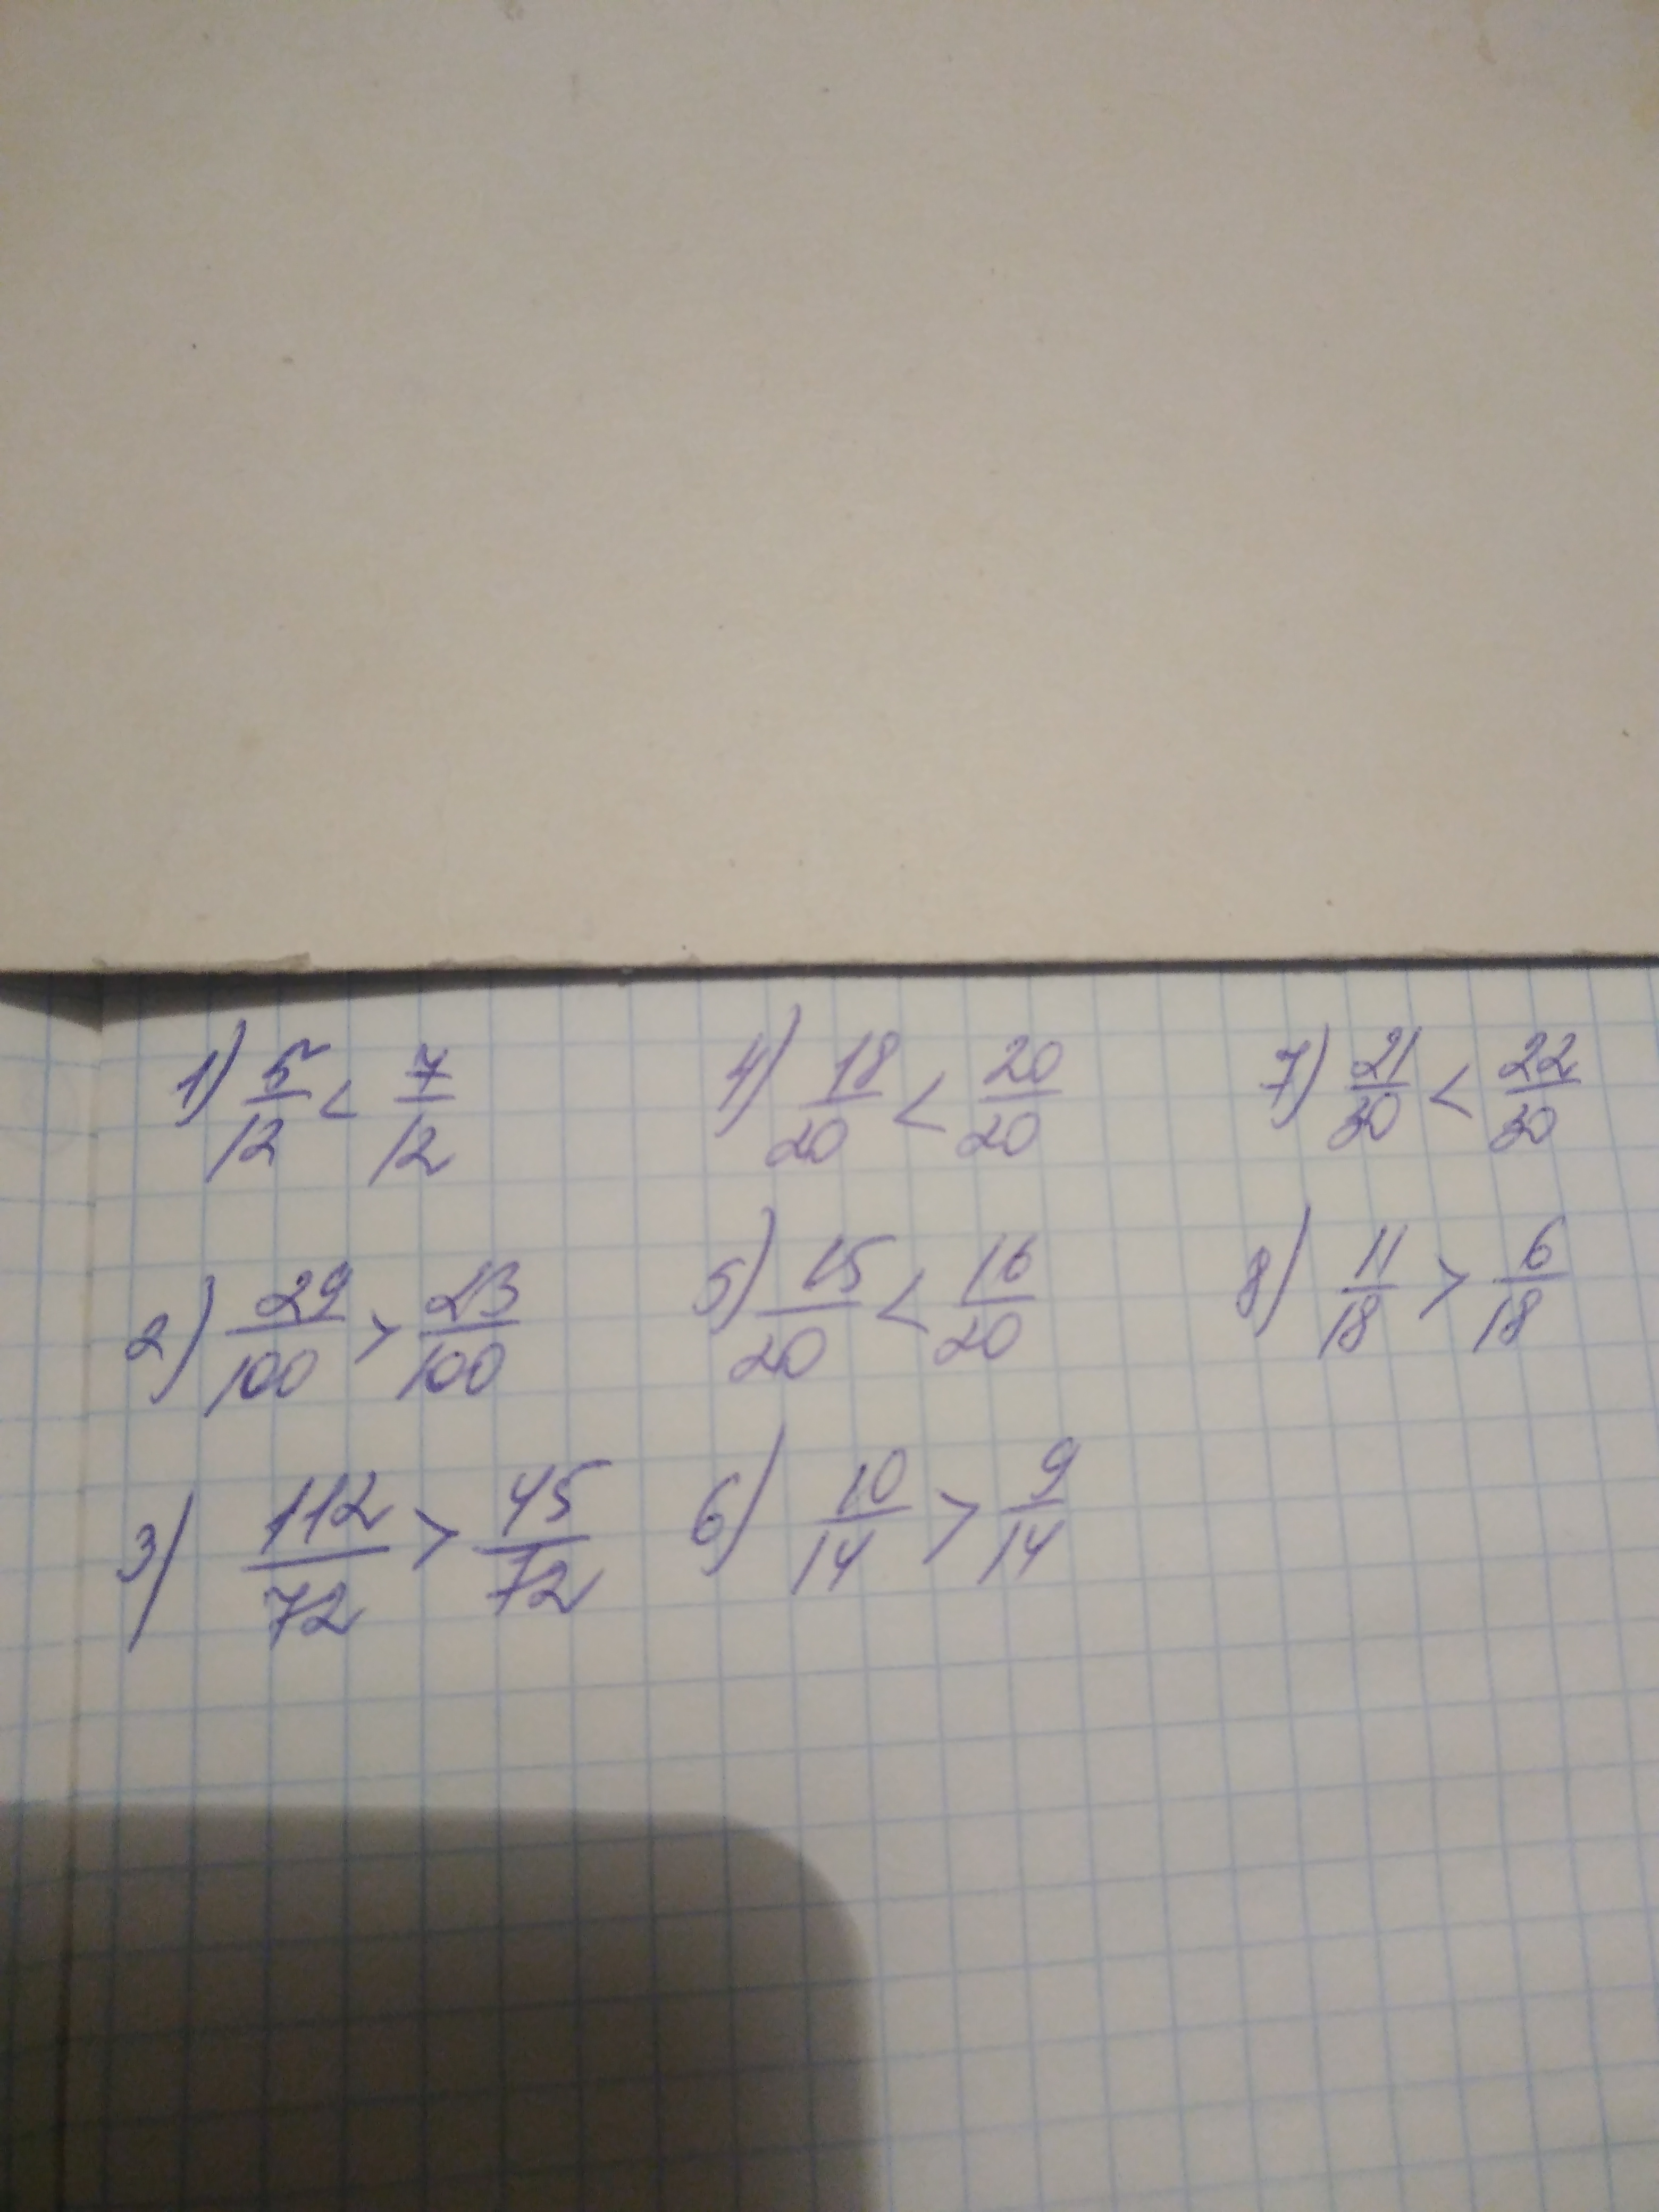 1) 5/12 < 7/12
2) 29/100 > 23/100
3) 112/72 > 45/72
4) 18/20 < 20/20
5) 15/20 < 16/20
6) 10/14 > 9/14
7) 21/30 < 22/30
8) 11/18 > 6/18